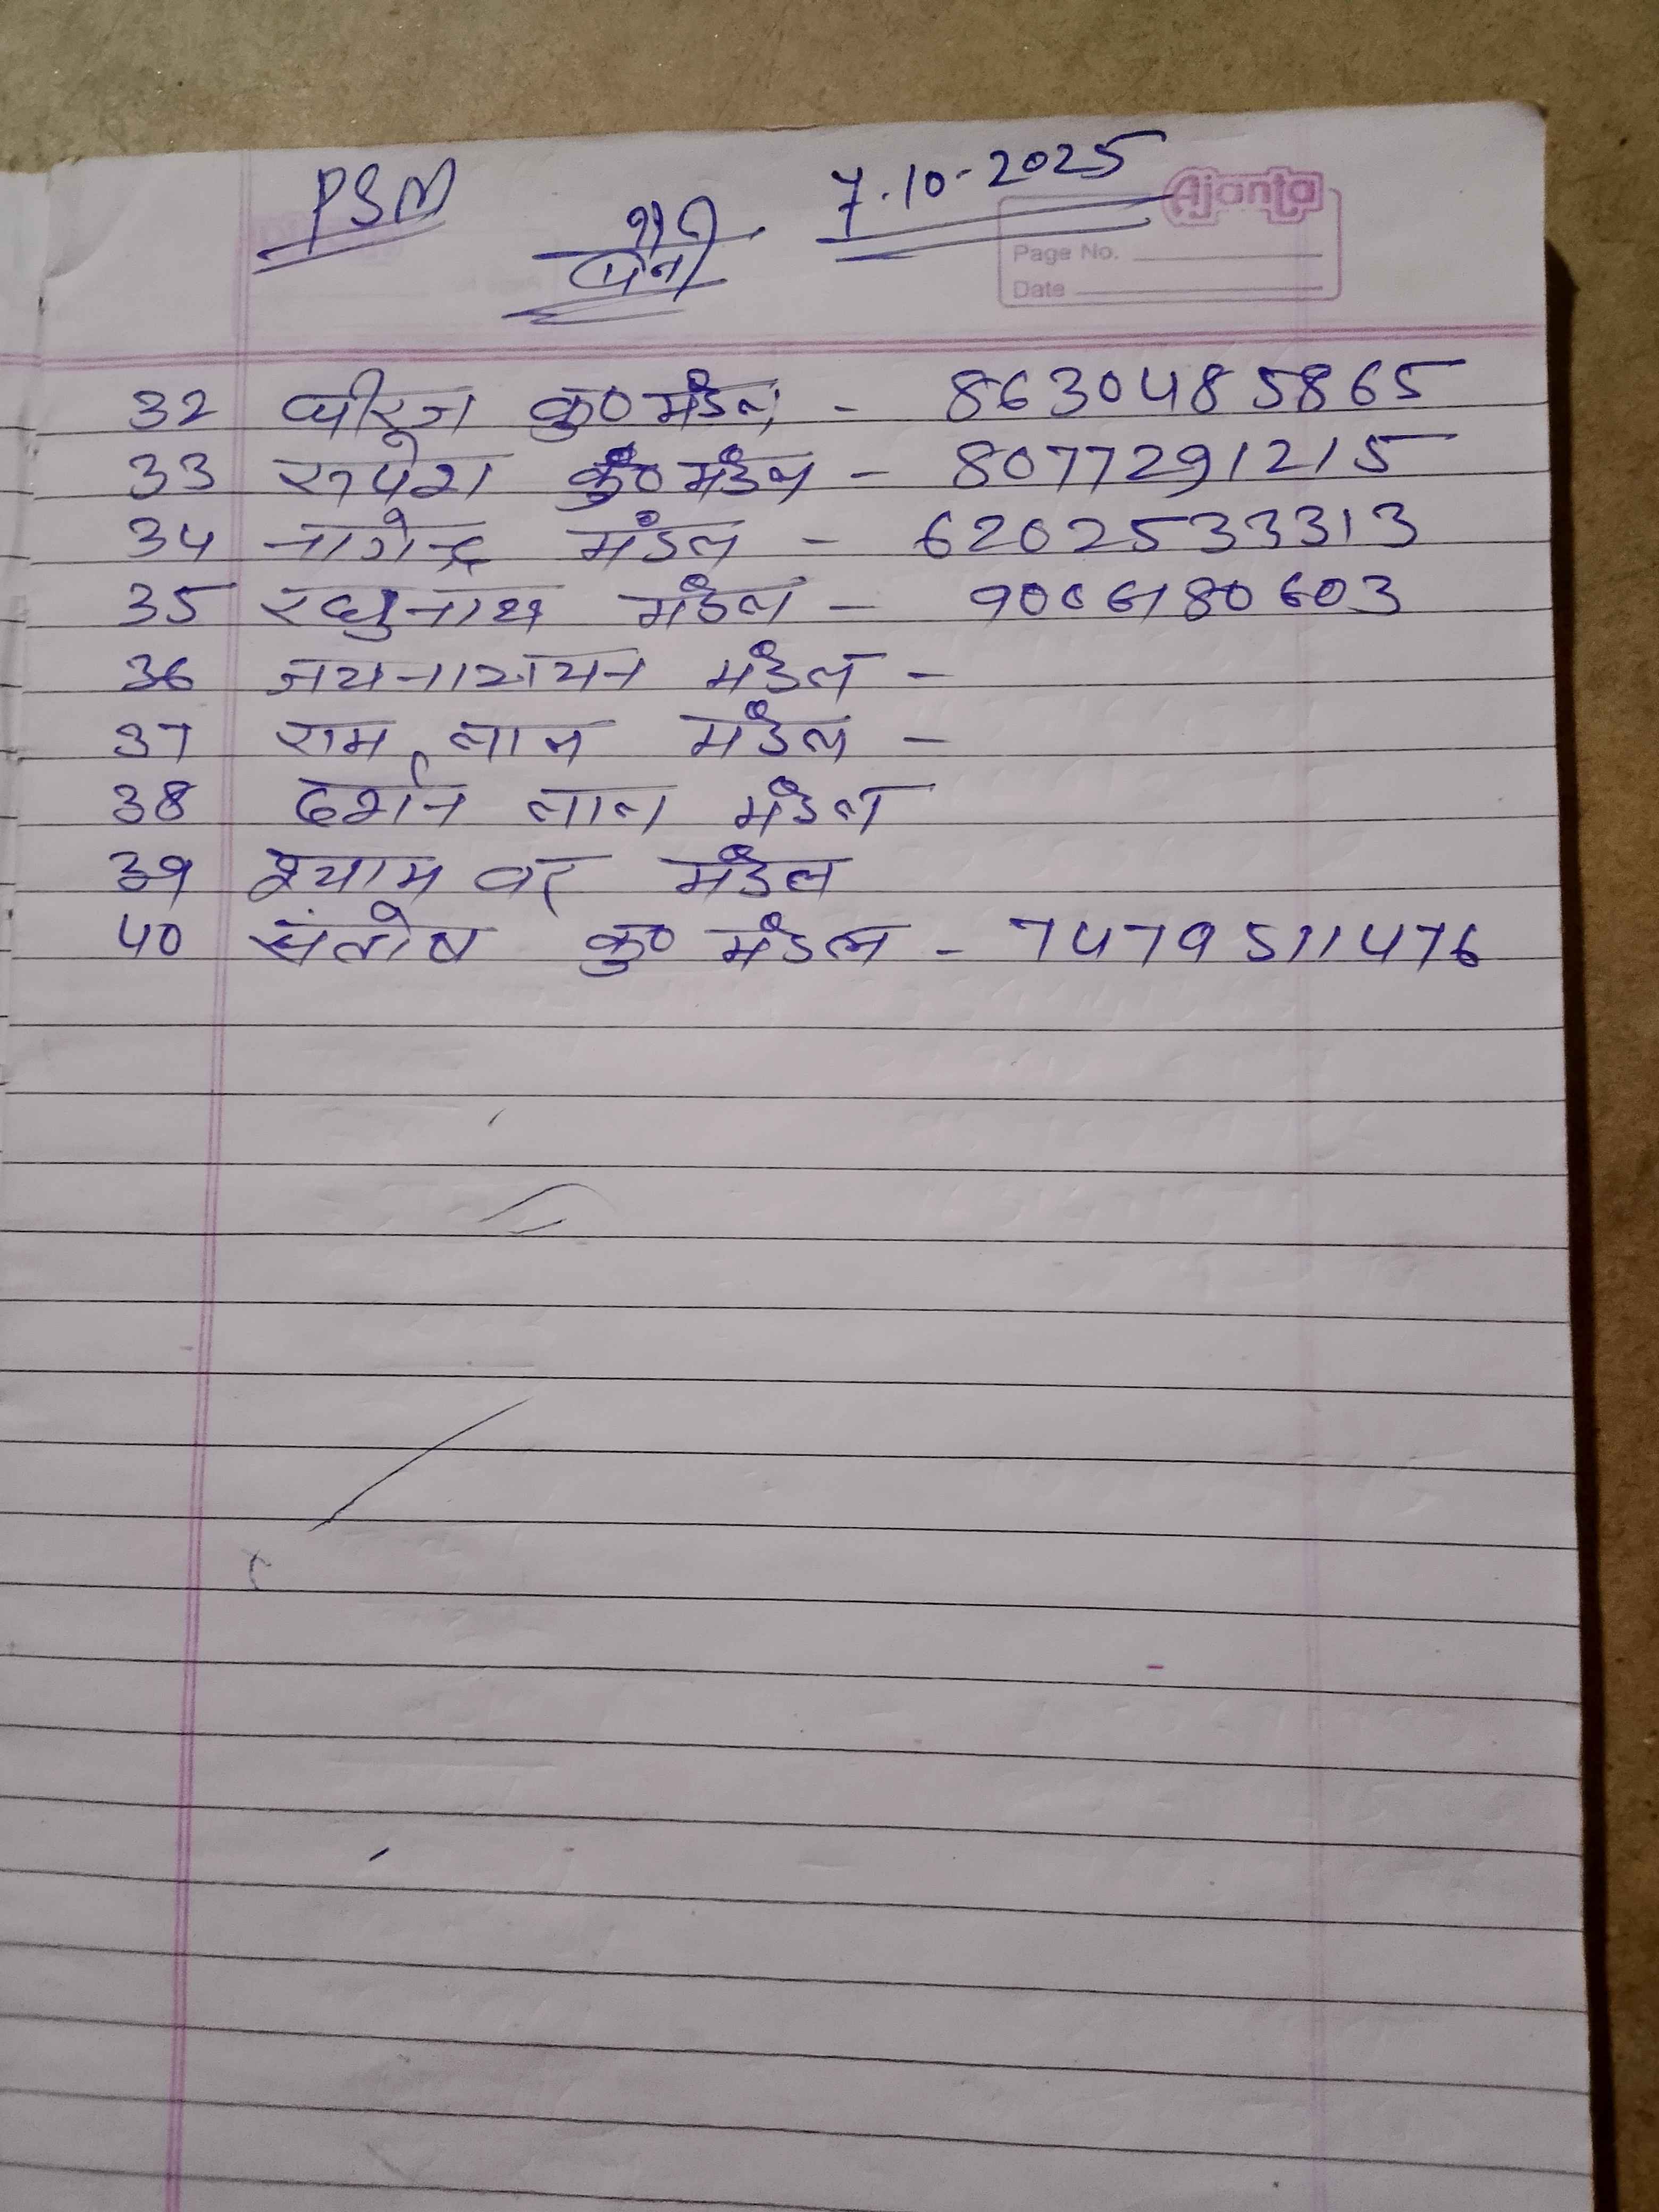 PSM 7.10-2025
Ajanta
Page No.
Date
32 धीरज कु० मंडल - 8630485865
33 रुपेश कु० मंडल - 8077291215
34 नागेन्द्र मंडल - 6202533313
35 रघुनाथ मंडल - 9006180603
36 जयनारायन मंडल -
37 राम लाल मंडल -
38 दर्शन लाल मंडल
39 श्याम वर मंडल
40 संतोष कु० मंडल - 7479511476